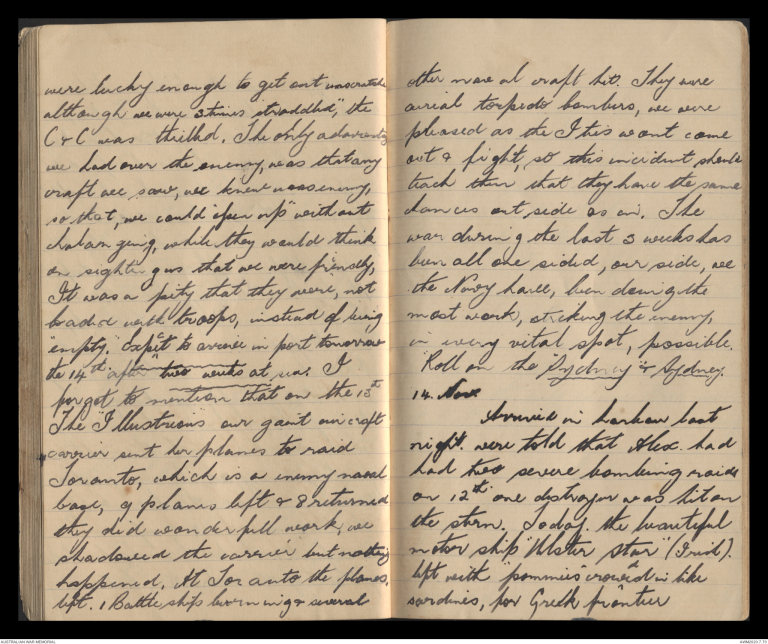 were lucky enough to get out unscratched
although we were 3 times straddled", the
C & C was thrilled. The only advantage
we had over the enemy, was that any
craft we saw, we knew was enemy,
so that, we could "open up" without
chalanging, while they would think
on sighting us that we were friendly,
It was a pity that they were, not
loaded with troops, instead of being
"empty". Expet to arrive in port tomorrow
the 14th after "two weeks at war. I
forgot to mention that on the 13th
The "Illustrious our gaint aircraft
carrier sent her planes to raid
Toranto, which is a enemy naval
base, 9 planes left & 8 returned
they did wonderfull work, we
shadowed the carrier but nothing
happened, At Toranto the planes,
left. 1 Battle ship burning & several
other naval craft hit. They were
aerial torpedo bombers, we were
pleased as the I ties wont come
out & fight, so this incident should
teach them that they have the same
chances out side as in. The
war during the last 3 weeks has
been all one sided, our side, we
the Navy have, been doing the
most work, striking the enemy,
in every vital spot, possible.
"Roll on the "Sydney" & Sydney.
14. Nov.
Arrived in harbour last
night. were told that Alex. had
had two severe bombing raids
on 12th one destroyer was hit on
the stern. Today. the beautiful
motor ship "Ulster Star" (Irish).
left with "pommies" crowded in like
sardines, for Greek frontier
AUSTRALIAN WAR MEMORIAL